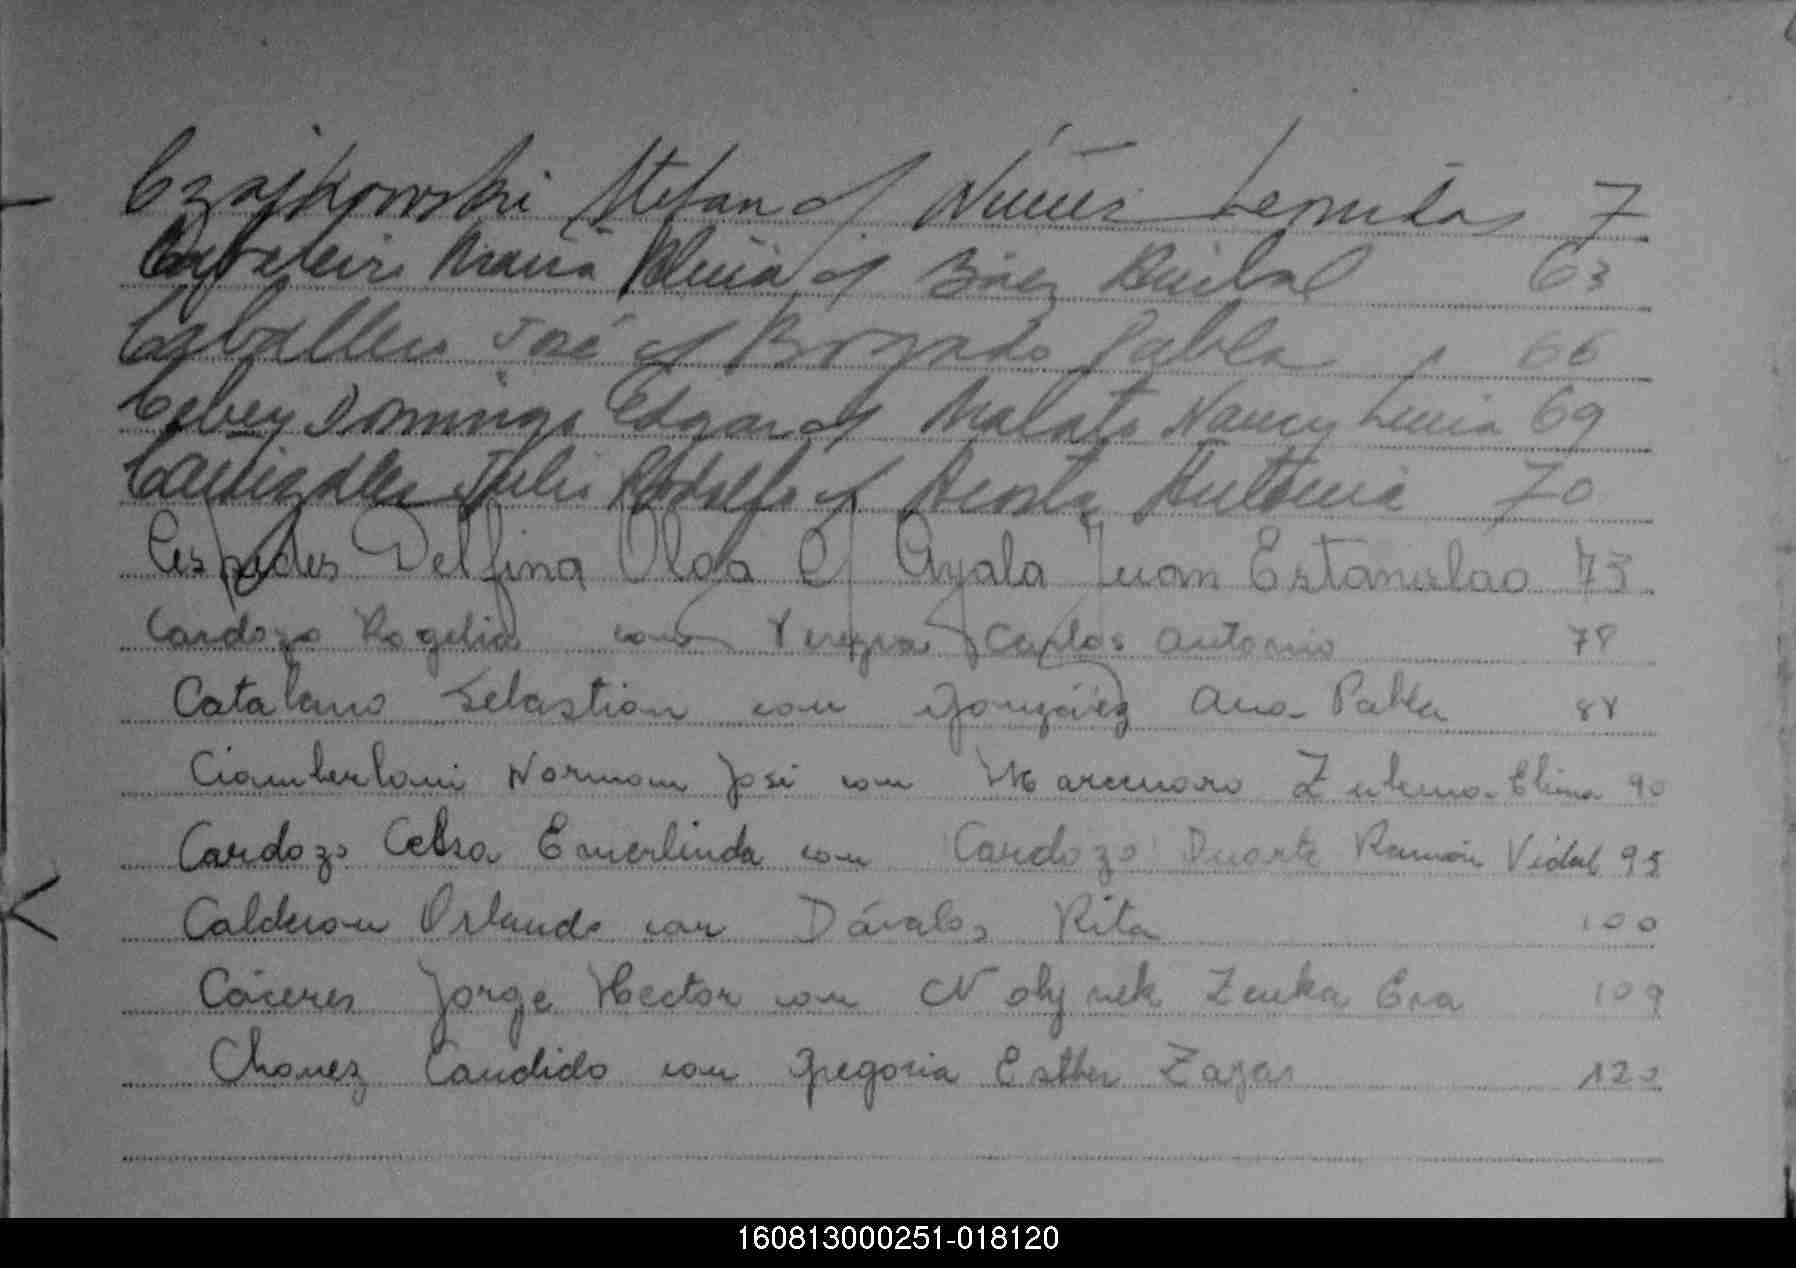 Czajkowski Stefan c/ Núñez 7
María c/ Báez 63
Caballero José c/ Bogado Pabla 66
Cebey Domingo Edgar c/ Malato Nancy Lucia 69
Julio Rodolfo c/ Acosta Antonia 70
Cespedes Delfina Olga c/ Ayala Juan Estanislao 73
Cardozo Rogelia con Carlos Antonio 78
Catalano Sebastian con Ana Pabla 88
Ciamberlani Norman José con Zulema Elina 90
Cardozo Celsa Emerlinda con Cardozo Duarte Ramón Vidal 95
Calderon Orlando con Dávalos Rita 100
Cáceres Jorge Hector con Zenka Eva 109
Chavez Candido con Gregoria Esther Zayas 120
160813000251-018120